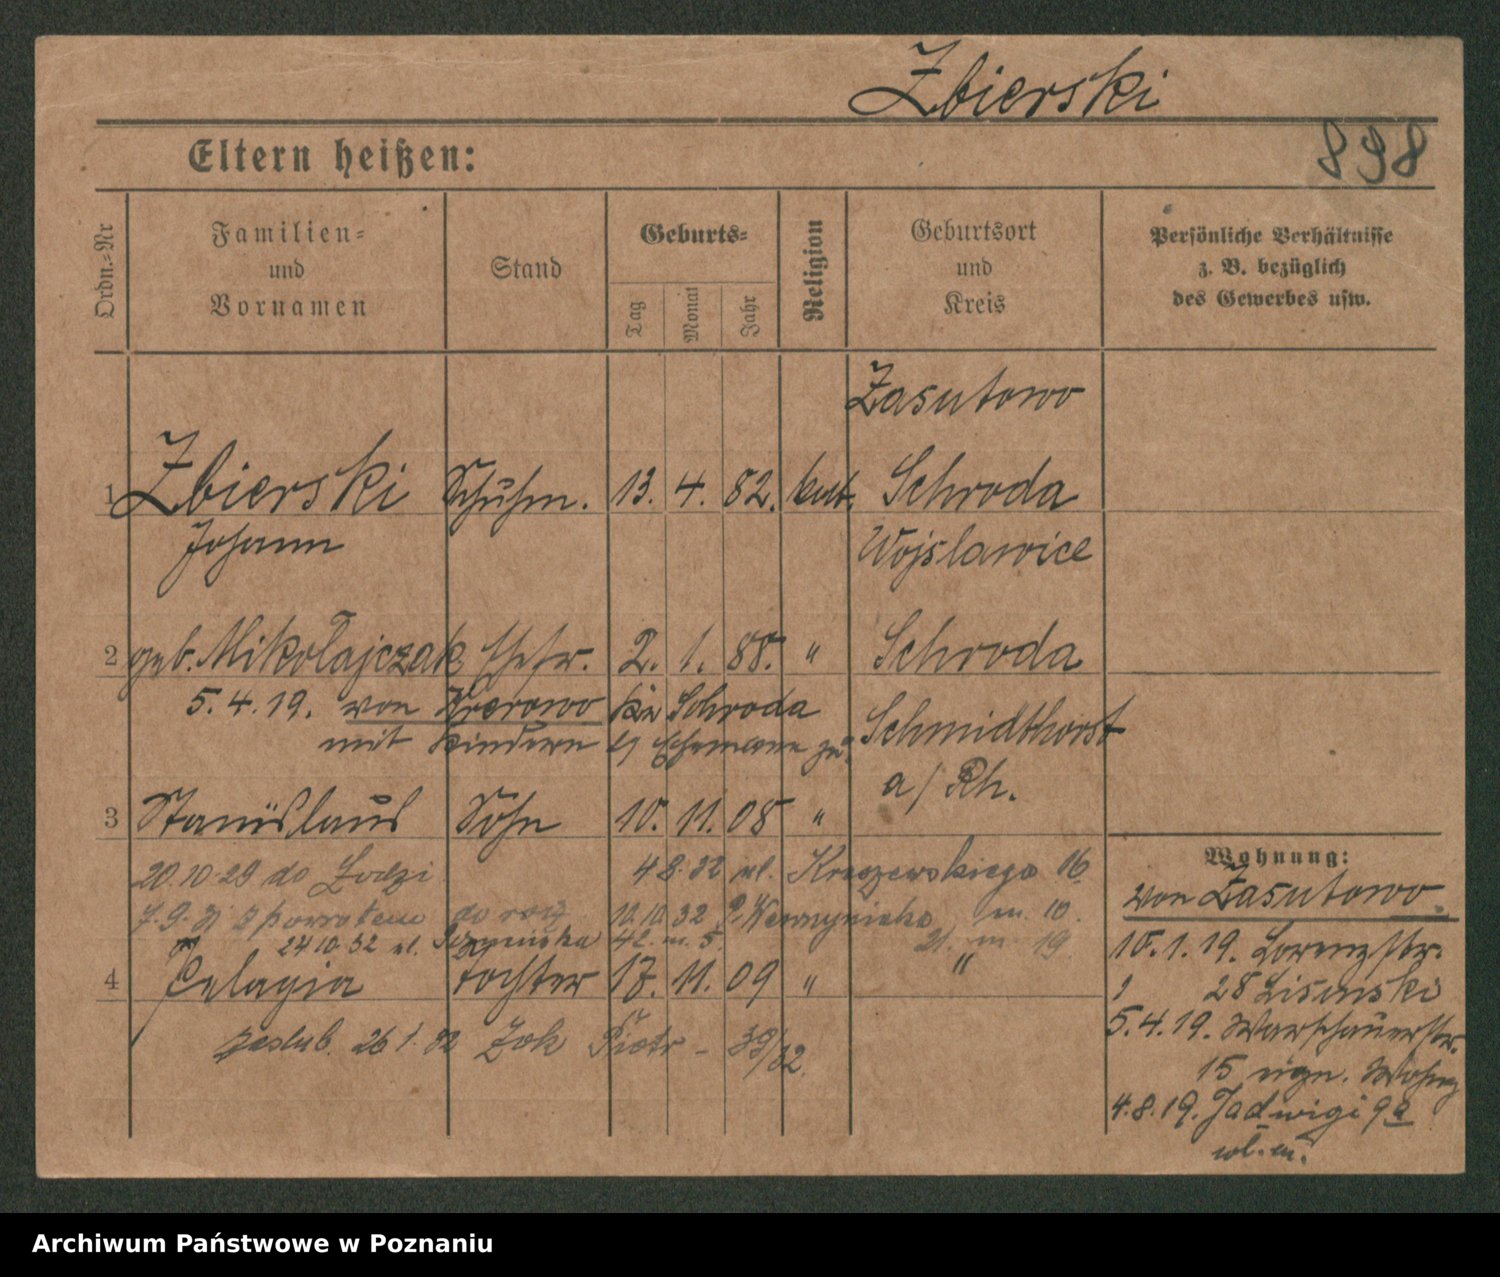 Zbierski
Eltern heißen:
898
Ordn.-Nr
Familien-
und
Vornamen
Stand
Geburts-
Tag
Monat
Jahr
Religion
Geburtsort
und
Kreis
Persönliche Verhältnisse
z. B. bezüglich
des Gewerbes usw.
Zasutowo
1 Zbierski Schuhm. 13. 4. 82. kat. Schroda
Johann
Wojslawice
2 geb. Mikołajczak Ehefr. 2. 1. 88. " Schroda
5.4.19. von Krerowo Kr Schroda
mit Kindern Ehemann zu
Schmidthorst
a/ Rh.
3 Stanislaus Sohn 10. 11. 08 "
20.10.29 do Łodzi
4 8. 32 ul. Kraszewskiego 16
z powrotem 10.10.32 m. 10.
24 10. 32 ul. 42. m. 5. 21. m. 19.
4 Pelagia Tochter 17. 11. 09 " "
zaslub. 26 1. 32 Żok Piotr - 39/32.
Wohnung:
von Zasutowo.
10.1.19. Lorenzstr.
28 Lisinski
5.4.19. Warschauerstr.
15 eign. Wohng
4.8.19. Jadwigi 9a
wł. m.
Archiwum Państwowe w Poznaniu